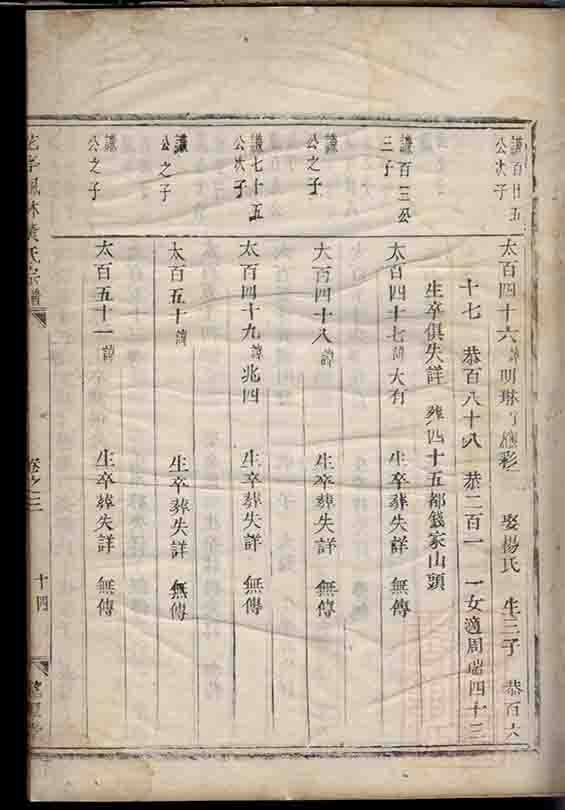 謙百廿五
公次子
太百四十六諱明琳 彩 娶楊氏 生三子 恭百六
十七 恭百八十八 恭二百一 一女適周端四十三
生卒俱失詳 葬四十五都錢家山頭
謙百三公
三子
太百四十七諱大有 生卒葬失詳 無傳
謙
公之子
太百四十八諱 生卒葬失詳 無傳
謙七十五
公次子
太百四十九諱兆四 生卒葬失詳 無傳
謙
公之子
太百五十諱 生卒葬失詳 無傳
謙
公之子
太百五十一諱 生卒葬失詳 無傳
林黃氏宗譜 卷之三 十四